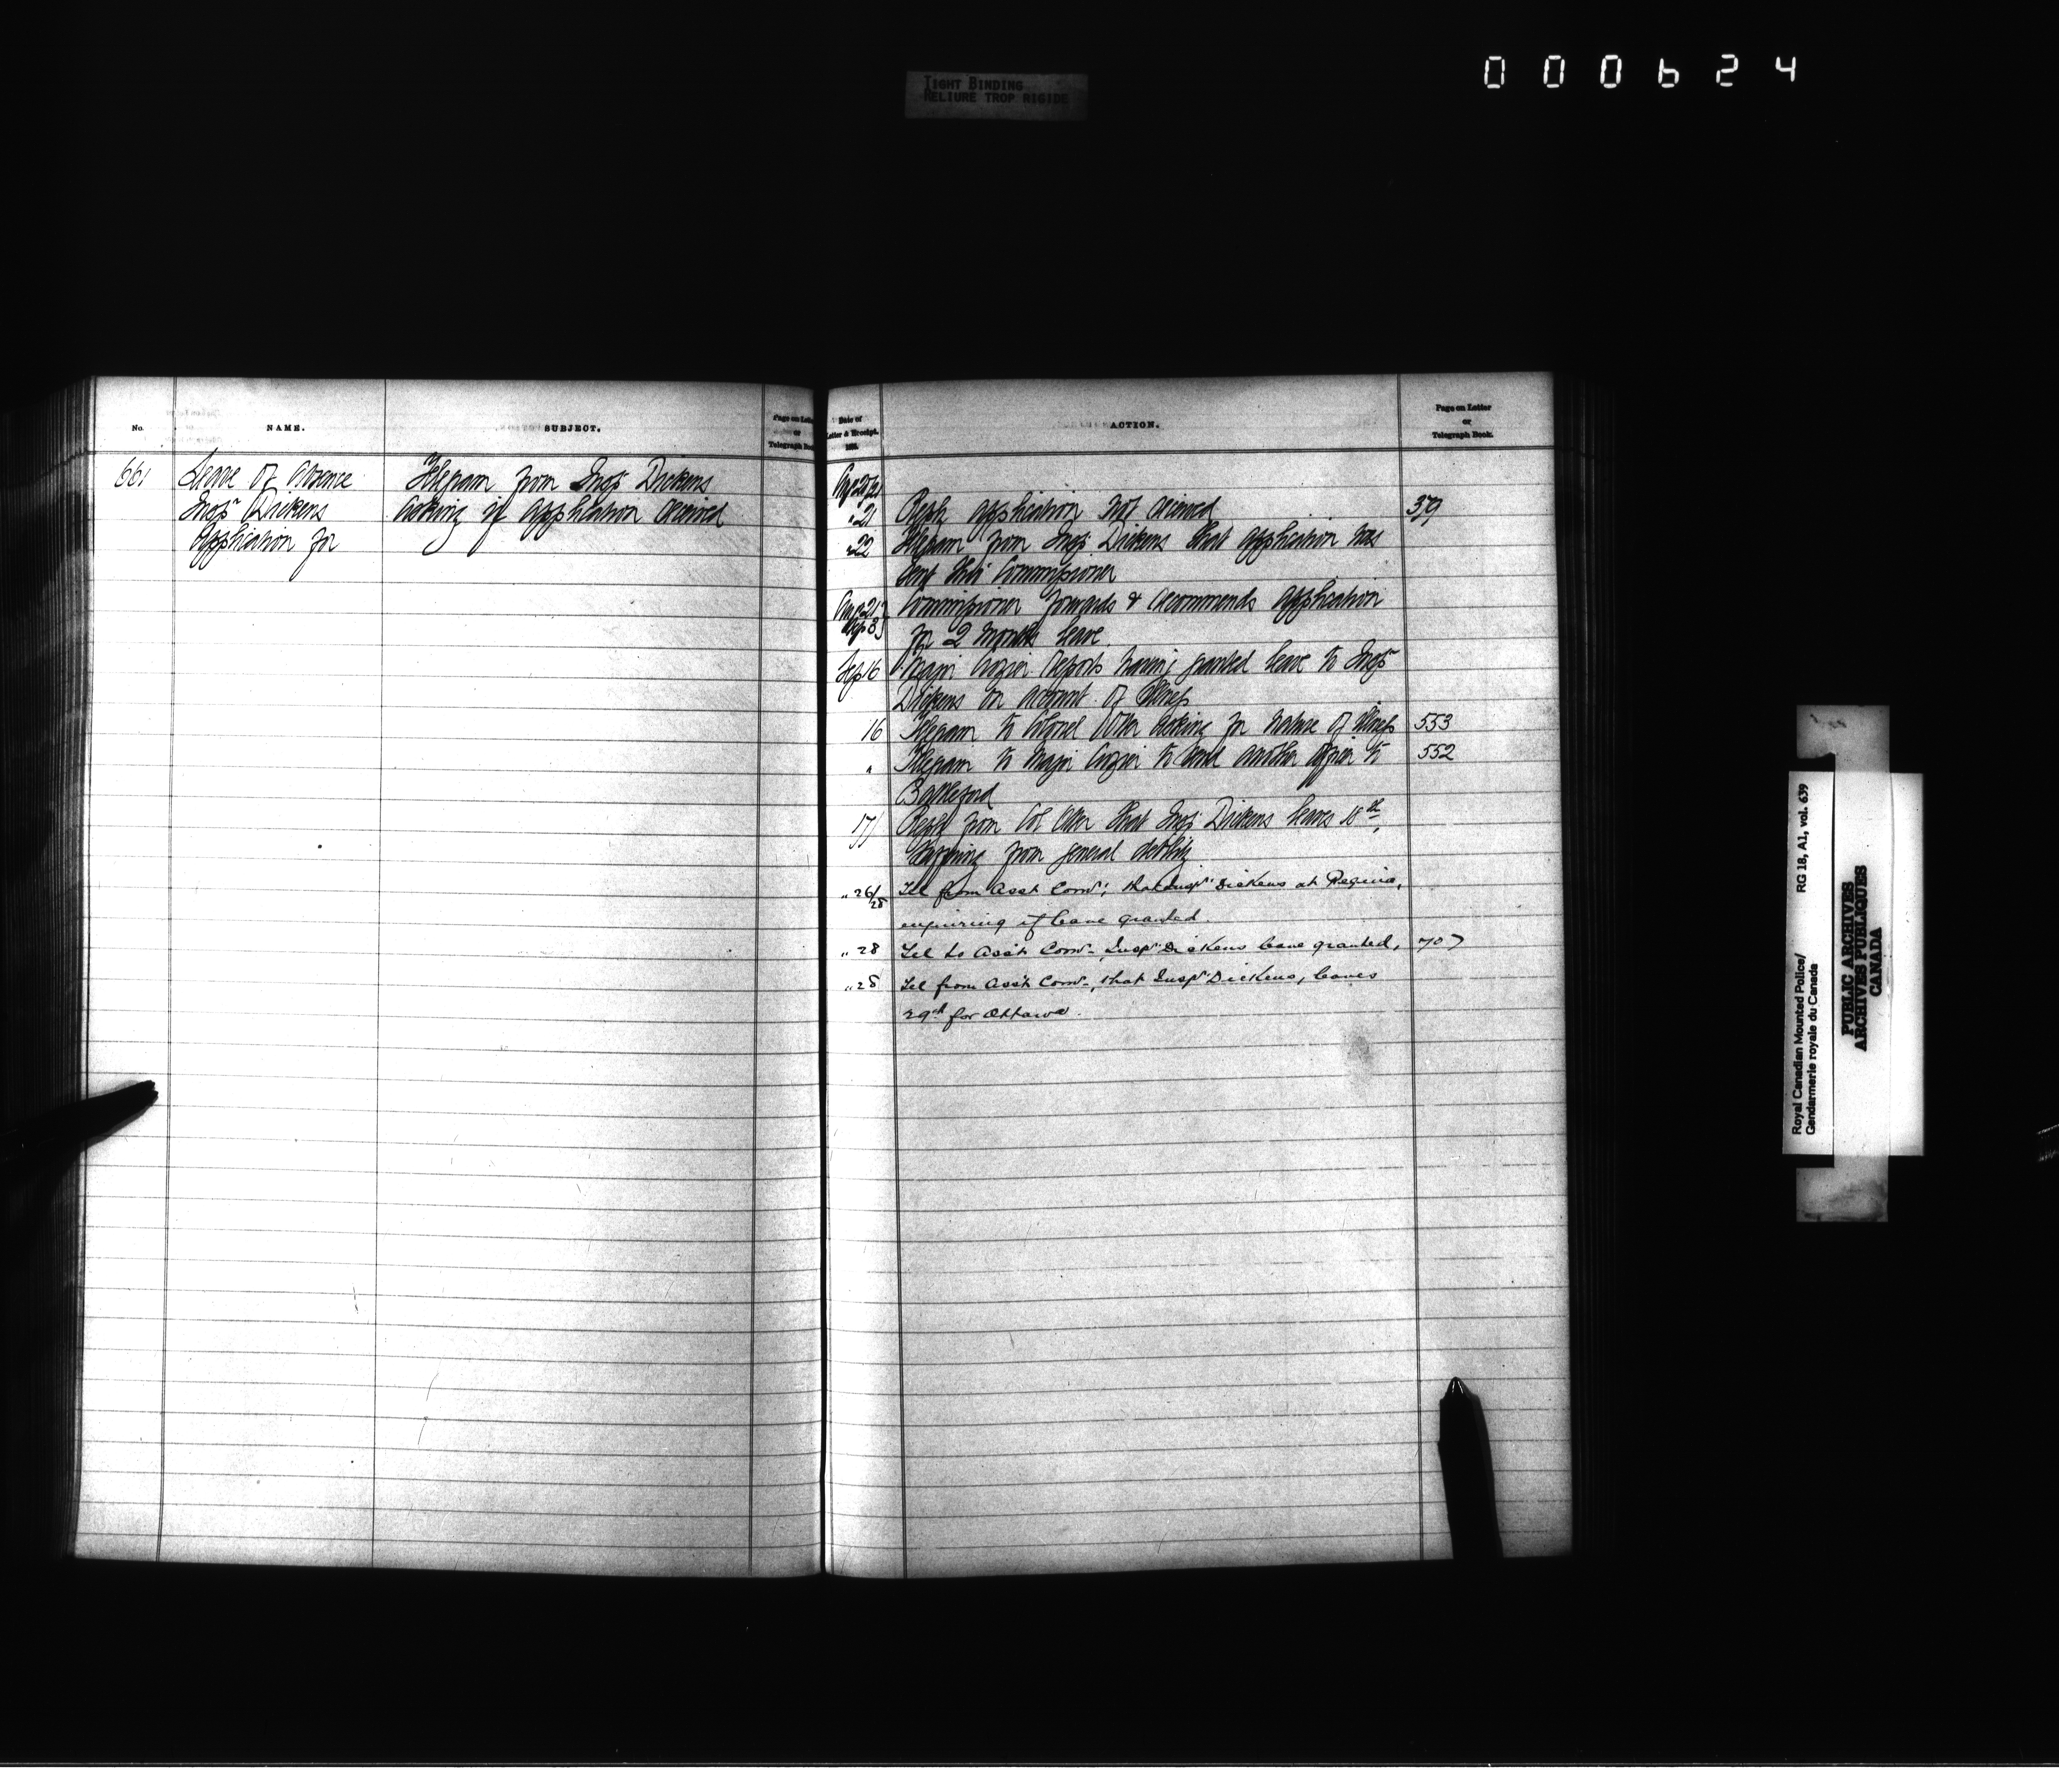 000624
TIGHT BINDING
RELIURE TROP RIGIDE
No.
NAME.
SUBJECT.
Page on Letter
or
Telegraph Book
Date of
Letter & Receipt.
188.
ACTION.
Page on Letter
or
Telegraph Book.
661 Leave of Absence Telegram from Insp^r Dickens
Insp^r Dickens asking if application received
Application for
Aug 20/21
" 21 Reply application not received 379
" 22 Telegram from Insp^r Dickens that application was
sent thro' Commissioner
Aug 21 Commissioner forwards & recommends application
Sep 3 for 2 months leave
Sep 16 Major Crozier reports having granted leave to Insp^r
Dickens on account of illness
16 Telegram to Colonel Otter asking for nature of illness 553
" Telegram to Major Crozier to send another officer to 552
Battleford
17 Reply from Col Otter that Insp^r Dickens leaves 18th,
suffering from general debility
" 26/28 Tel from Asst Com^r, that Insp^r Dickens at Regina,
enquiring if leave granted.
" 28 Tel to Asst Com^r, Insp^r Dickens leave granted, 707
" 28 Tel from Asst Com^r, that Insp^r Dickens, leaves
29th for Ottawa.
Royal Canadian Mounted Police/
Gendarmerie royale du Canada
RG 18, A1, vol. 639
PUBLIC ARCHIVES
ARCHIVES PUBLIQUES
CANADA